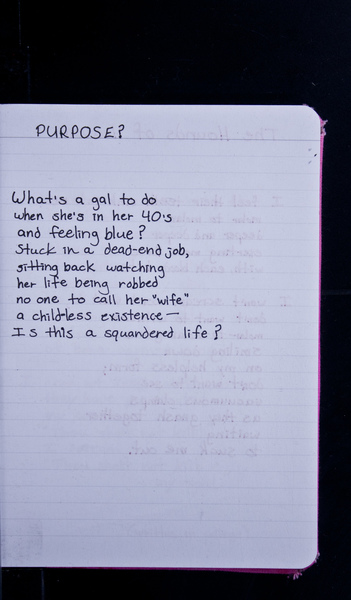 PURPOSE?
What's a gal to do
when she's in her 40's
and feeling blue?
Stuck in a dead-end job,
sitting back watching
her life being robbed
no one to call her "wife"
a childless existence—
Is this a squandered life?